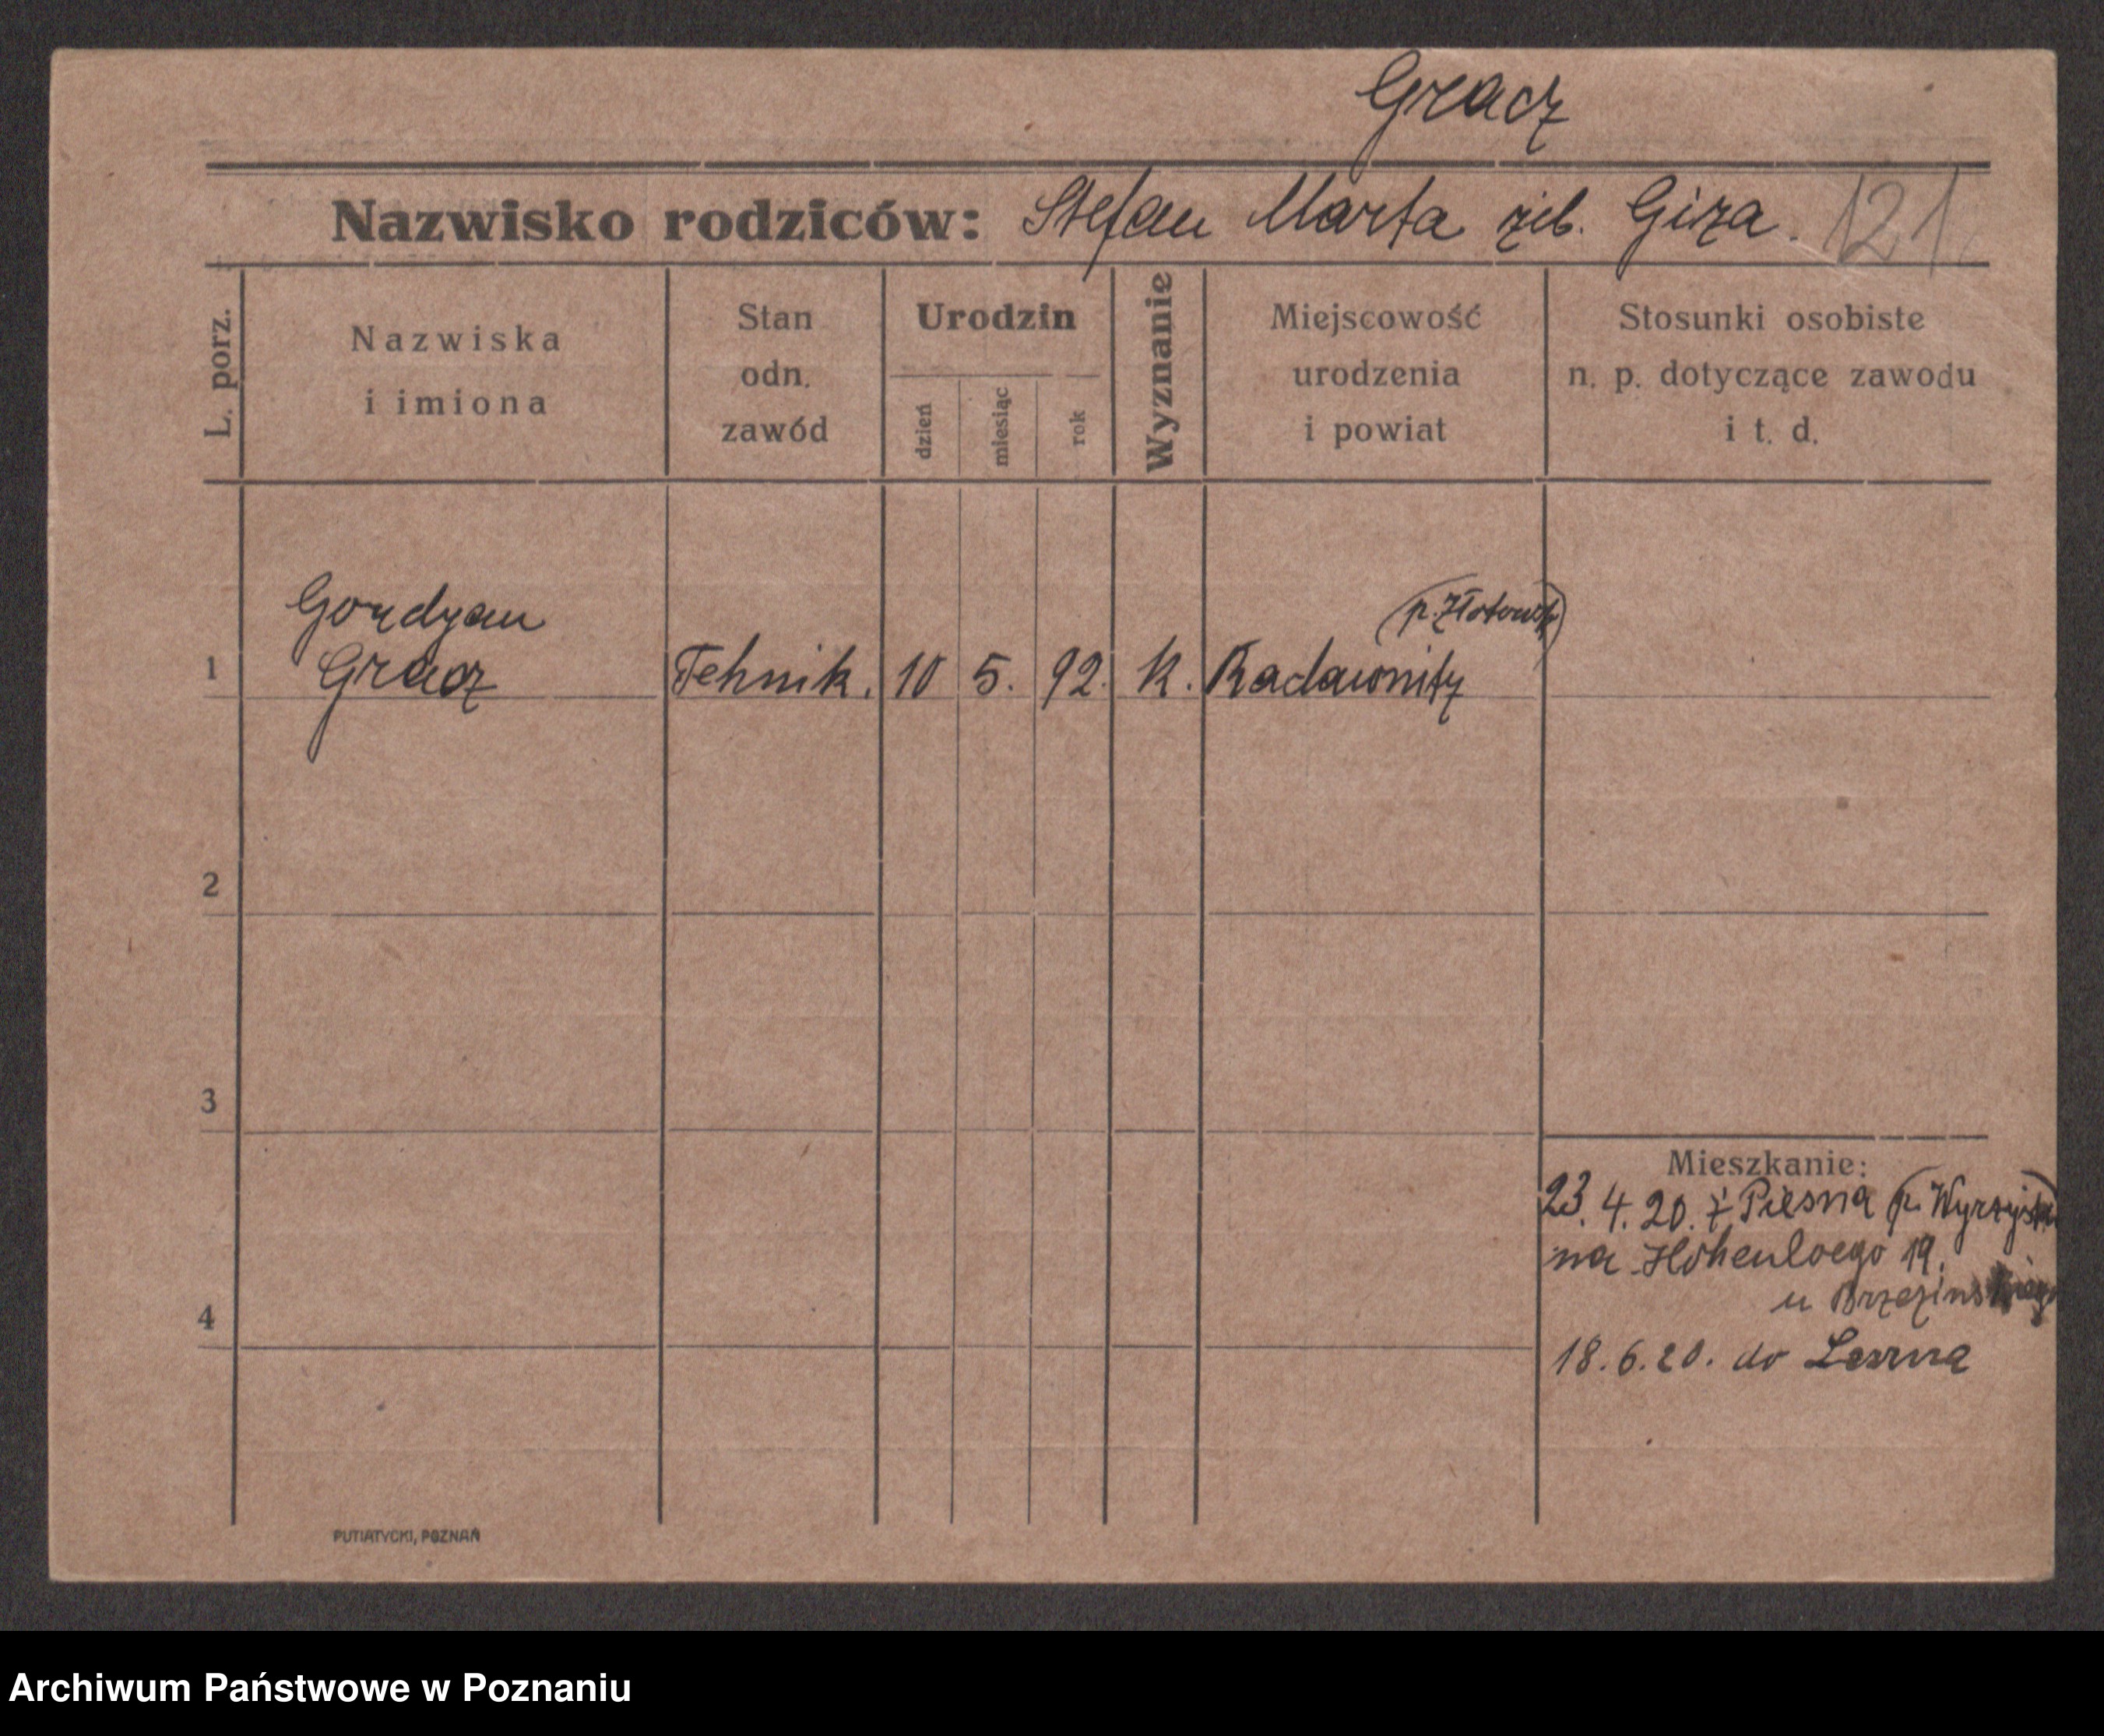 Gracz
Nazwisko rodziców: Stefan Marta Giza. 121
L. porz.
Nazwiska
i imiona
Stan
odn.
zawód
Urodzin
dzień
miesiąc
rok
Wyznanie
Miejscowość
urodzenia
i powiat
Stosunki osobiste
n. p. dotyczące zawodu
i t. d.
Gordyan
(p. Złotowsk)
1 Gracz Tehnik. 10 5. 92. K. Radawnitz
2
3
4
Mieszkanie:
23. 4. 20. z Piesna
na Hohenloego 19.
u Brzezinskiego
18. 6. 20. do Leszna
PUTIATYCKI, POZNAŃ
Archiwum Państwowe w Poznaniu